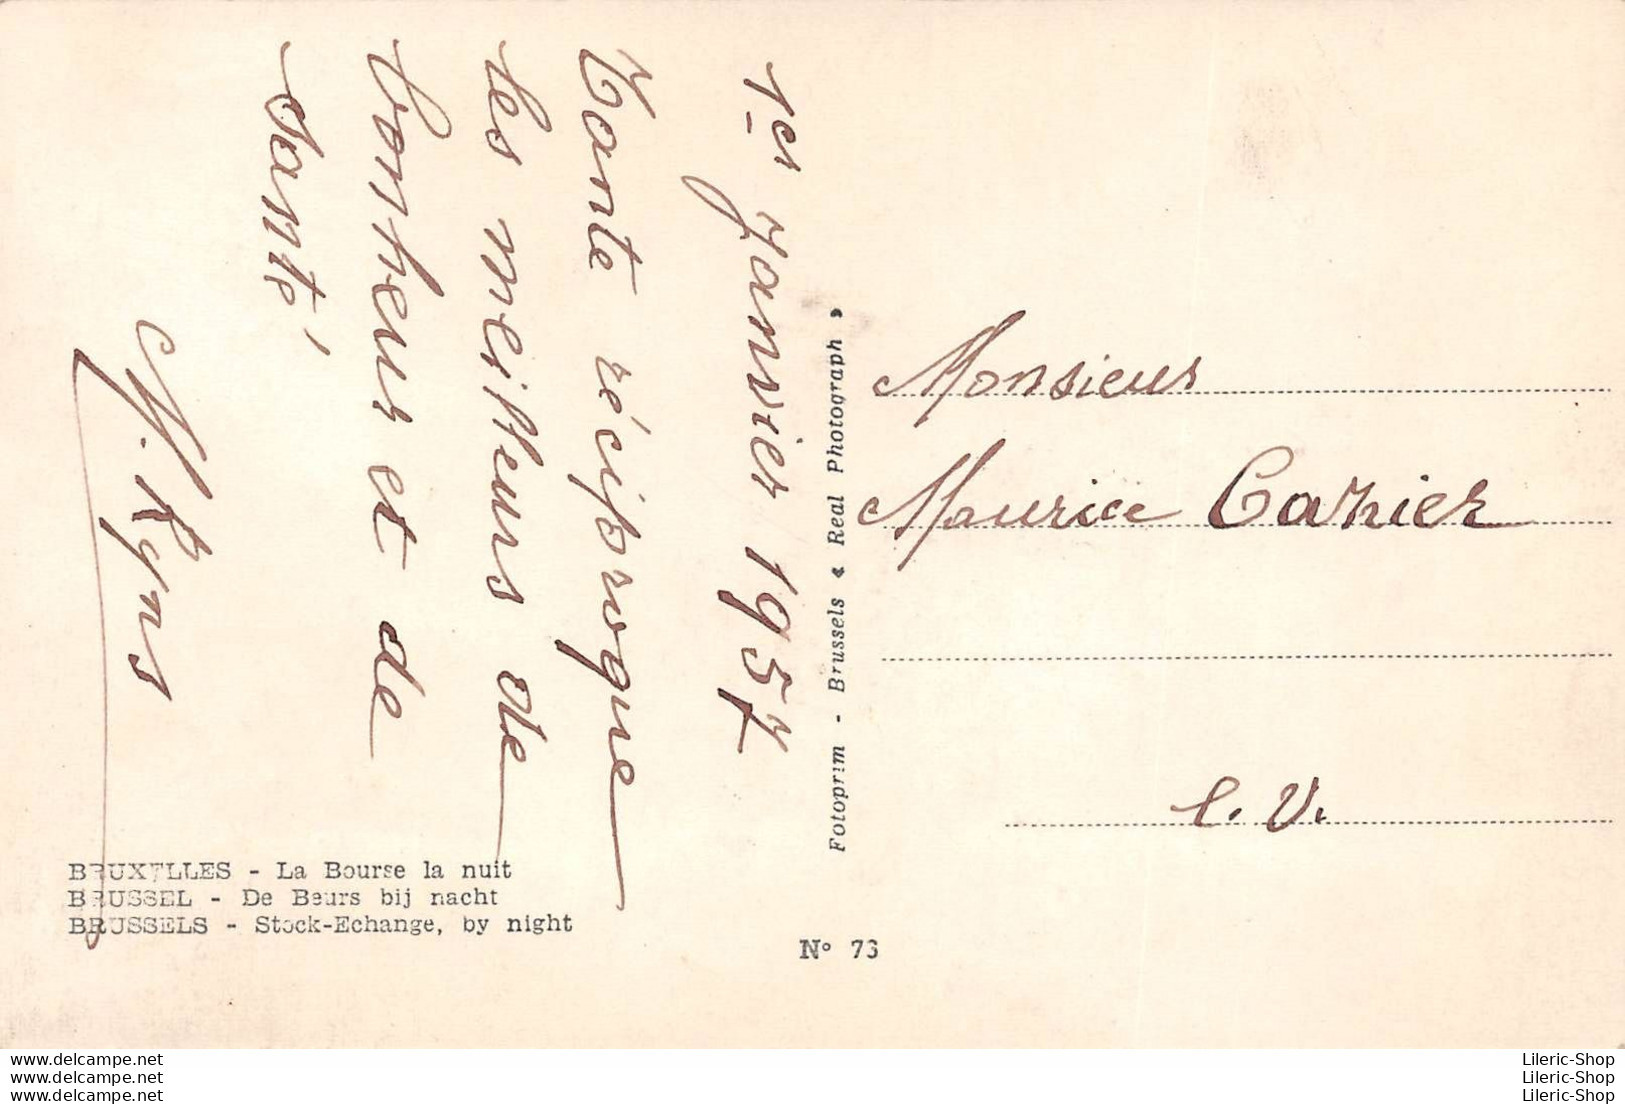 1er Janvier 1957
Tante réciproque
les meilleurs de
bonheur et de
Santé
M. Ryns
Fotoprim - Brussels « Real Photograph »
Monsieur
Maurice Carhier
E. V.
BRUXELLES - La Bourse la nuit
BRUSSEL - De Beurs bij nacht
BRUSSELS - Stock-Echange, by night
N° 73
www.delcampe.net
www.delcampe.net
www.delcampe.net
Lileric-Shop
Lileric-Shop
Lileric-Shop